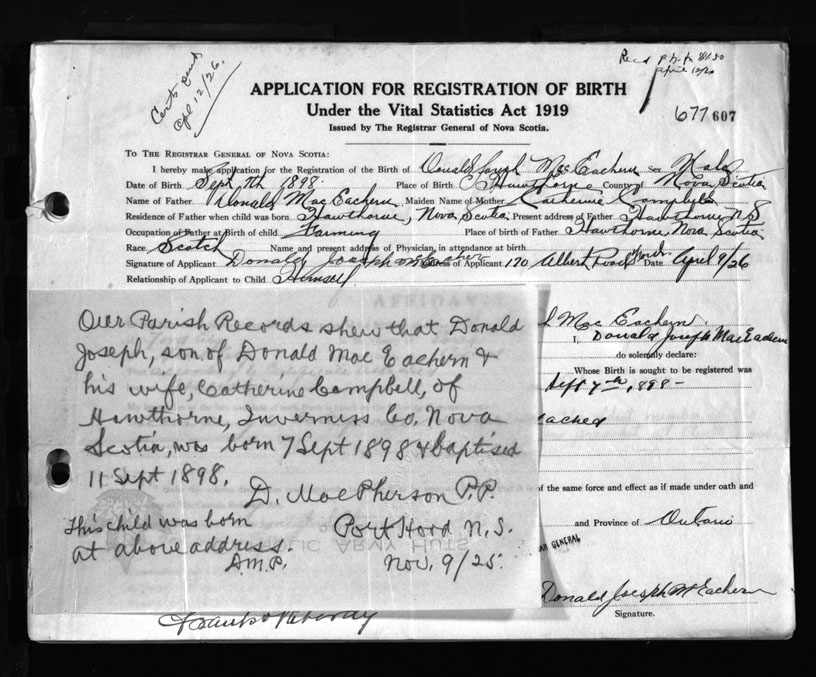 Certs sent
Apl 12/26.
Recd
April 12/26
APPLICATION FOR REGISTRATION OF BIRTH
Under the Vital Statistics Act 1919
Issued by The Registrar General of Nova Scotia.
677607
To The Registrar General of Nova Scotia:
I hereby make application for the Registration of the Birth of Donald Joseph MacEachern Sex Male
Date of Birth Sept 7th 1898. Place of Birth Hawthorne County of Nova Scotia
Name of Father Donald MacEachern Maiden Name of Mother Katherine Campbell
Residence of Father when child was born Hawthorne, Nova Scotia Present address of Father Hawthorne N.S
Occupation of Father at Birth of child Farming Place of birth of Father Hawthorne, Nova Scotia
Race Scotch Name and present address of Physician, in attendance at birth
Signature of Applicant Donald Joseph McEachern Address of Applicant 170 Albert Road Date April 9/26
Relationship of Applicant to Child Himself
AFFIDAVIT
Our Parish Records shew that Donald
Joseph, son of Donald Mac Eachern &
his wife, Catherine Campbell, of
Hawthorne, Inverness Co. Nova
Scotia, was born 7 Sept 1898 & baptised
11 Sept 1898.
D. MacPherson P.P.
This child was born
at above address.
D.M.P.
Port Hood N.S.
Nov. 9/25.
ARMY HUTS
Mac Eachern
I, Donald Joseph MacEachern
do solemnly declare:
Whose Birth is sought to be registered was
Sept 7th, 1898 -
of the same force and effect as if made under oath and
and Province of Ontario
GENERAL
Donald Joseph McEachern
Signature.